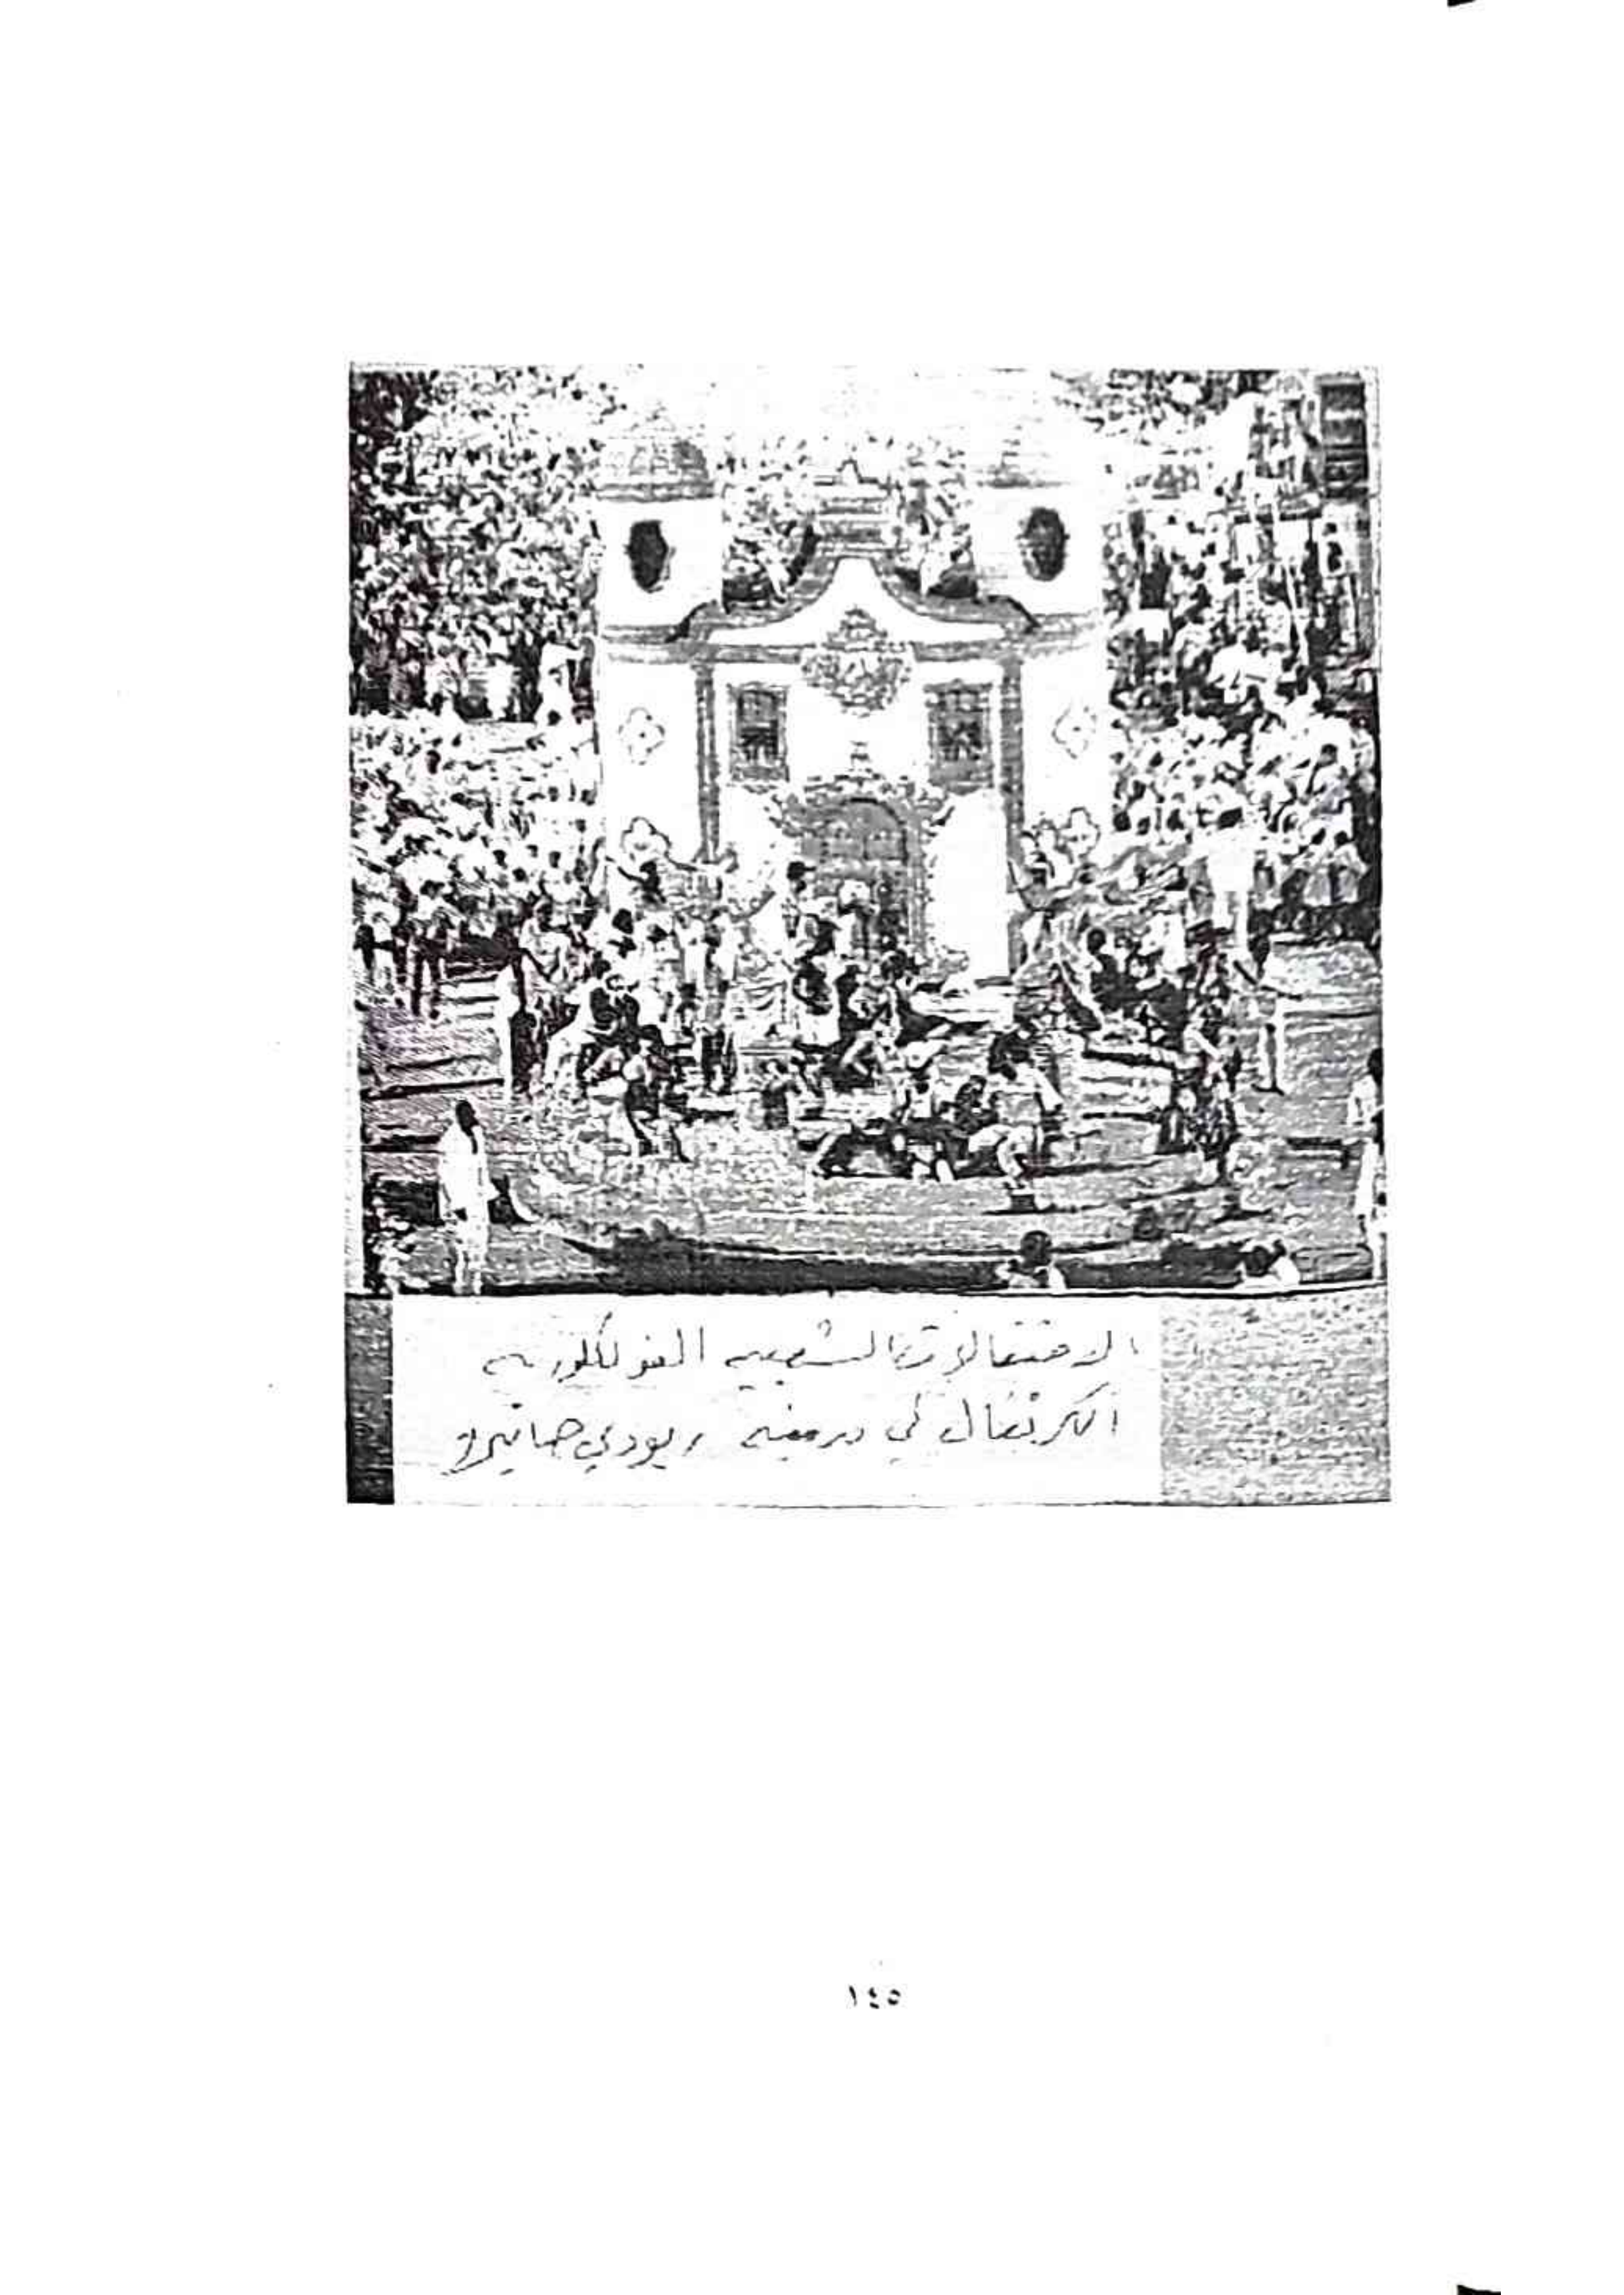 الاحتفالات الشعبيه الفولكلوريه
الكرنفال في مدينه ريودي جانيرو
١٤٥